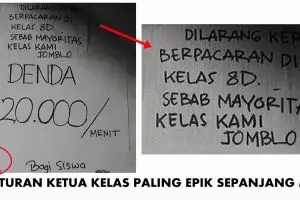 DILARANG
BERPACARAN DI
KELAS 8D.
SEBAB MAYORITAS
KELAS KAMI
JOMBLO
DENDA
20.000/
MENIT
Bagi Siswa
DILARANG
BERPACARAN DI
KELAS 8D.
SEBAB MAYORITAS
KELAS KAMI
JOMBLO
TURAN KETUA KELAS PALING EPIK SEPANJANG